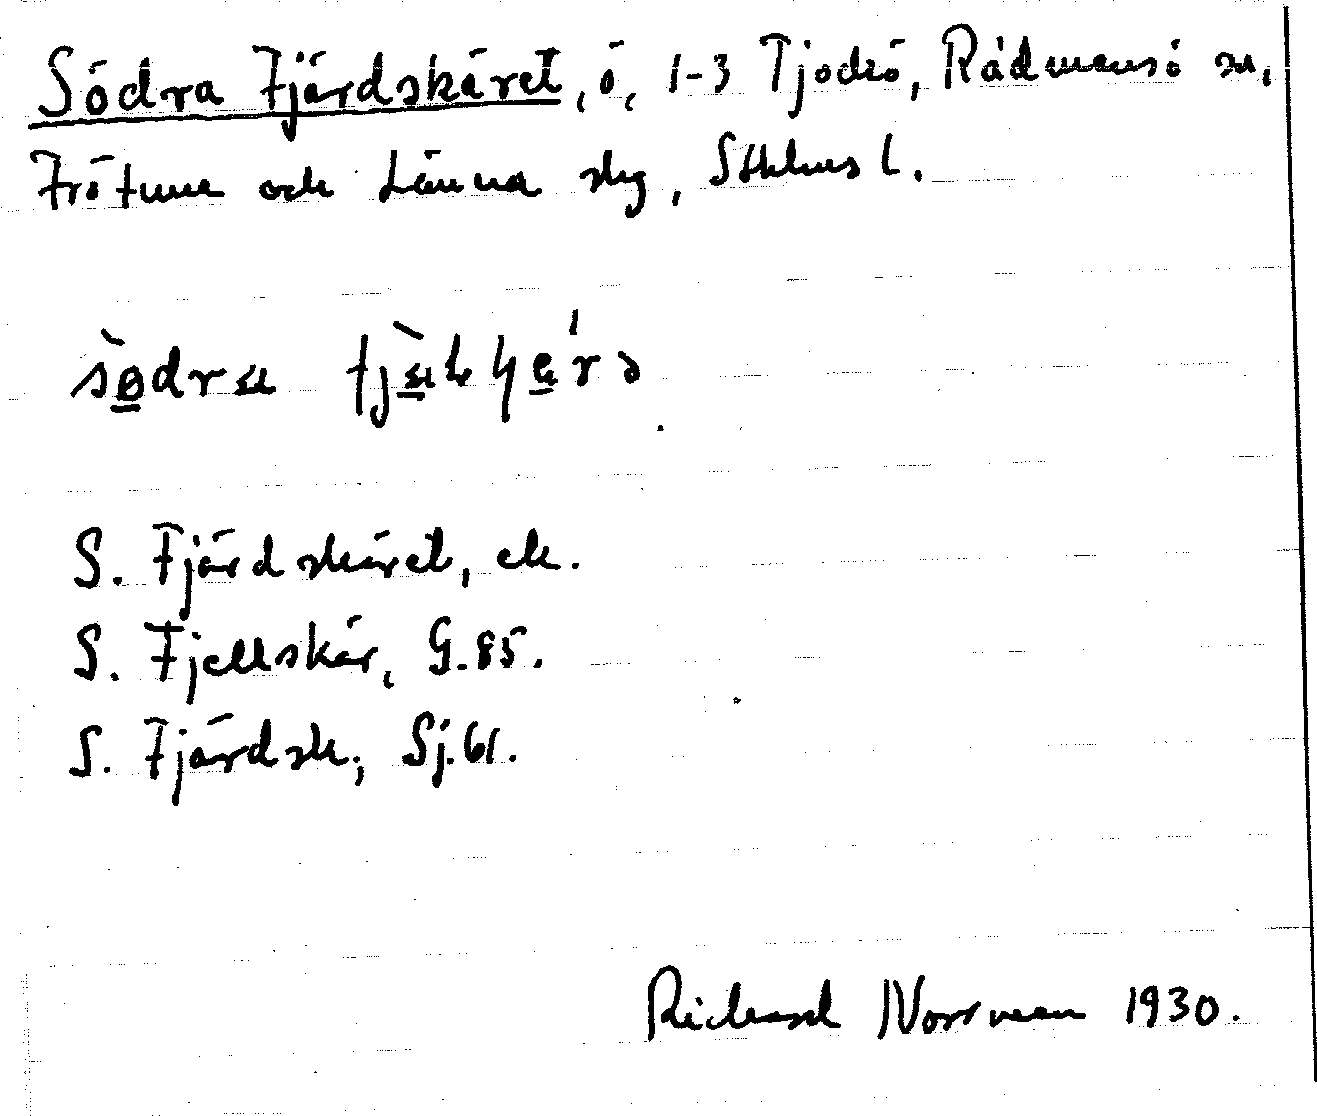 Södra Fjärdskäret, ö, 1-3 Tjockö, Rådmansö sn,
Frötuna och Länna slg, Sthlms l.
S. Fjärdskäret, ek.
S. Fjellskär, G.85.
S. Fjärdsk., Sj.61.
Richard Norrman 1930.